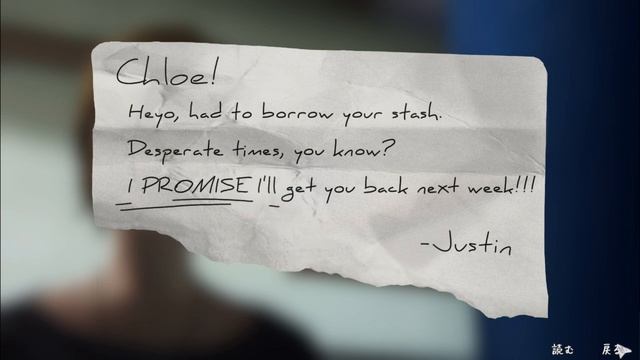 Chloe!
Heyo, had to borrow your stash.
Desperate times, you know?
I PROMISE I'll get you back next week!!!
-Justin
読む